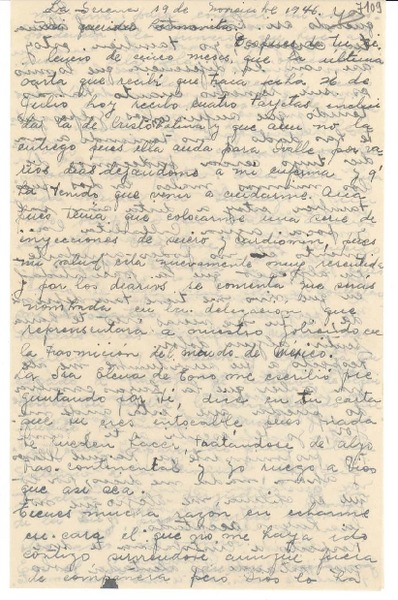 La Serena, 19 de Noviembre 1946.
7109
mi querida hermanita.
Despues de tu si
lencio de cinco meses, que la ultima
carta que recibí que traia fecha 26 de
Julio, hoy recibo cuatro tarjetas
la de Cristo Telina y que aun no la
entrego pues ella anda para ovalle por va
rios dias dejandome a mi enferma y
tenido que venir a cuidarme. Ana
pues tenia que colocarme una serie de
inyecciones de suero y cardiomon, pues
mi salud esta nuevamente muy resentida
y por los dearios se comenta que seras
nombrada en la delegacion que
representara a nuestro gobierno en
la trasmicion del mando de Mexico.
La Sra. de me escribió pre
guntando por ti, dices en tu carta
que tu eres intocable pues nada
te pueden hacer tratándose de algo
continental y yo ruego a Dios
que asi sea.
tienes mucha razon en echarme
en cara el que no me haya ido
contigo aunque fuera
de compañera pero Dios lo ha